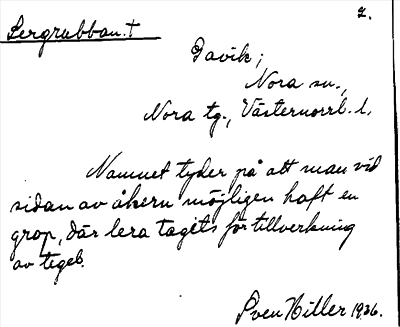 Lergrubban.t
2.
Gavik;
Nora sn.,
Nora tg., Västernorrl. l.
Namnet tyder på att man vid
sidan av åkern möjligen haft en
grop, där lera tagits för tillverkning
av tegel.
Sven Hiller 1936.